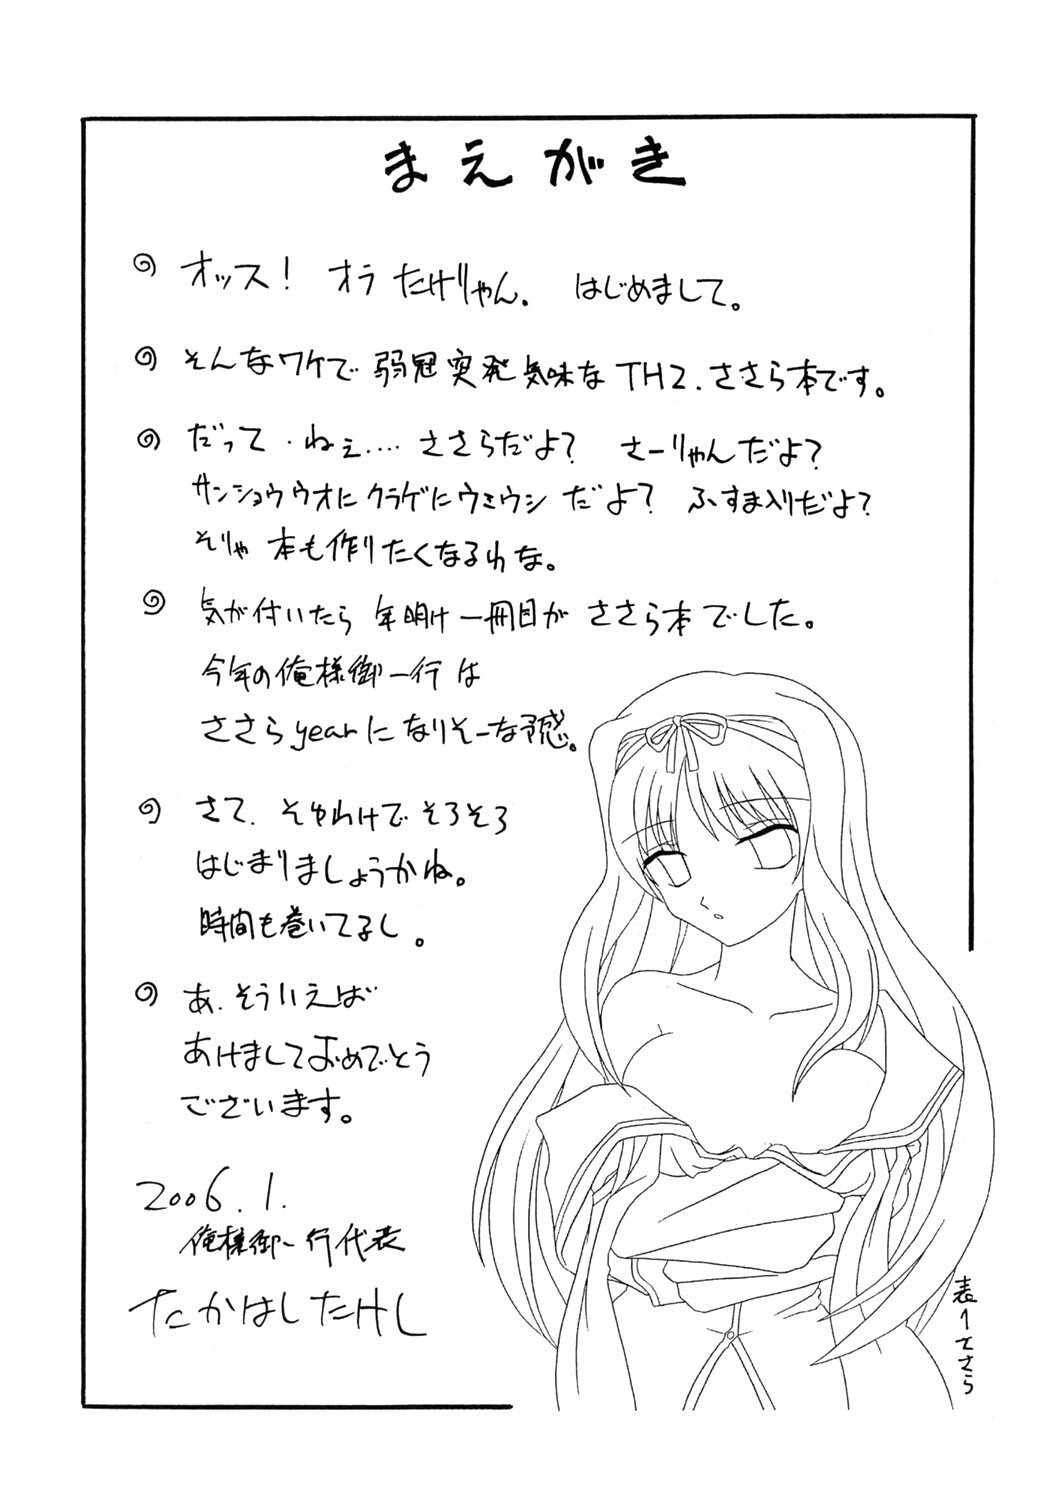 まえがき
オッス! オラ たけりゃん. はじめまして。
そんなワケで 弱冠突発気味な TH2. ささら本です。
だって.ねぇ.... ささらだよ? さーりゃんだよ?
サンショウウオにクラゲにウミウシ だよ? ふすま入りだよ?
そりゃ 本も作りたくなるわな。
気が付いたら 年明け一冊目が ささら本でした。
今年の俺様御一行は
ささらyearになりそーな予感。
さて. そゆわけで そろそろ
はじまりましょうかね。
時間も巻いてるし。
あ. そういえば
あけましておめでとう
ございます。
2006.1.
俺様御一行代表
たかはしたけし
表1てさら